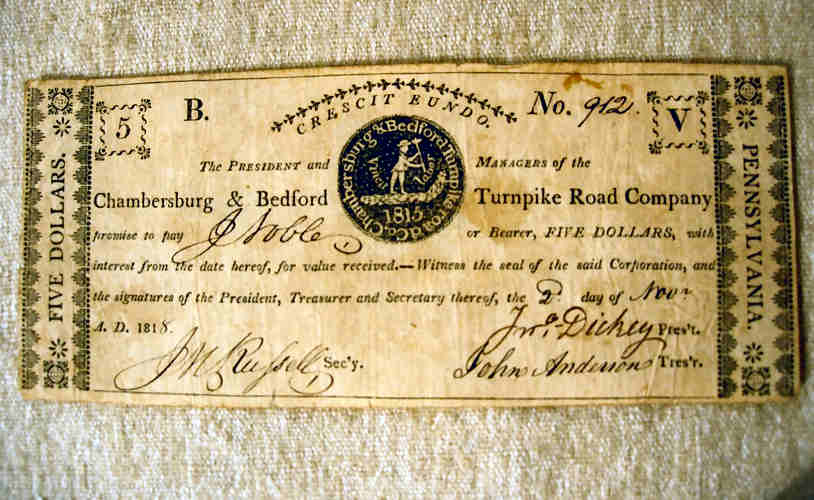 CRESCIT EUNDO.
5 B. No. 912. V
The PRESIDENT and MANAGERS of the
Chambersburg & Bedford Turnpike Road Company
promise to pay J Noble or Bearer, FIVE DOLLARS, with
interest from the date hereof, for value received.—Witness the seal of the said Corporation, and
the signatures of the President, Treasurer and Secretary thereof, the 2d day of Novr
A. D. 1818. Jno. Dickey Pres't.
J M Russell Sec'y. John Anderson Tres'r.
FIVE DOLLARS.
PENNSYLVANIA.
Chambersburg & Bedford Turnpike Road Co
1815